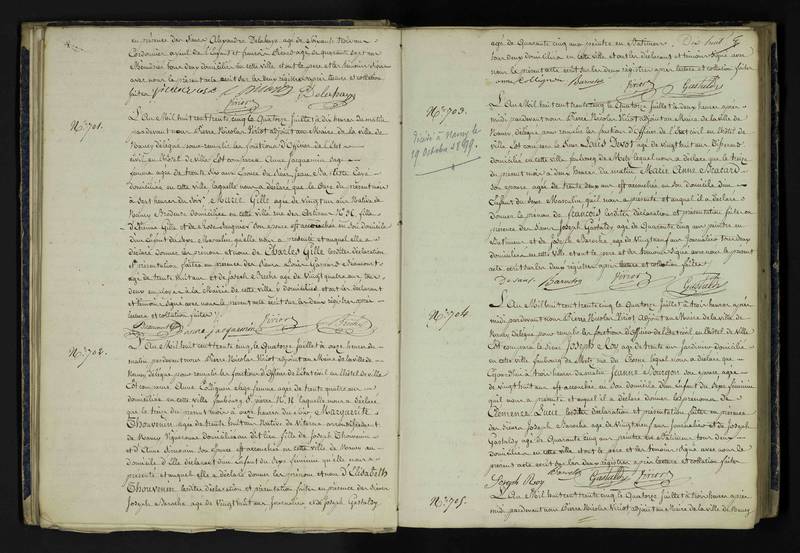 en présence des Sieurs Alexandre Delahaye agé de Soixante trois ans
Cordonnier ayeul de l'Enfant et
Menuisier tous deux domiciliés en cette ville et ont le pere et les témoins signé
avec nous le present acte écrit sur les deux registres après lecture et collation
faites
Delahaye
Viriot
N°. 701.
L'An Mil huit cent trente cinq le Quatorze Juillet à dix heures du matin
pardevant nous Pierre Nicolas Viriot adjoint au Maire de la ville de
Nancy délégué pour remplir les fonctions d'Officier de l'état
civil en l'hôtel de Ville est comparue Anne Jacquemin sage
femme agée de trente
domiciliée en cette ville, laquelle nous a déclaré que le Onze du présent mois
à sept heures du soir, Marie Gille agée de Vingt un ans Native de
Nancy Brodeuse domiciliée en cette ville rue des Artisans N°. 31 fille
d'Etienne Gille et de
d'un Enfant du Sexe Masculin qu'elle nous a présenté et auquel elle a
déclaré donner les prénom et nom de Charles Gille lesdites déclaration
et présentation faites en présence des Sieurs Louis
agé de trente huit ans et de Joseph
deux employés à la Mairie de cette ville y domiciliés et ont les déclarant
et témoins signé avec nous le présent acte écrit sur les deux registres après
lecture et collation faites
Jacquemin
Viriot
N°. 702.
L'An Mil huit cent trente cinq le Quatorze Juillet à onze heures du
matin pardevant nous Pierre Nicolas Viriot adjoint au Maire de la ville de
Nancy délégué pour remplir les fonctions d'Officier de l'état civil en l'hôtel de ville
Est comparue Anne Collignon sage femme agée de trente quatre ans
domiciliée en cette ville faubourg St. Pierre N°. laquelle nous a déclaré
que le treize du présent mois à onze heures du soir, Marguerite
Thouvenin agée de trente huit ans Native de
de Nancy Vigneronne domiciliée au dit lieu fille de Joseph Thouvenin
et d'Anne son épouse est accouchée en cette ville de Nancy au
domicile d'elle déclarant d'un Enfant du Sexe féminin qu'elle nous a
présenté et auquel elle a déclaré donner les prénom et nom d'Elisabeth
Thouvenin lesdites déclaration et présentation faites en présence des Sieurs
Joseph Baroche agé de Vingt huit ans Journalier et de Joseph Gastaldy
agé de Quarante cinq ans peintre en Batiment
Dix huit
tous deux domiciliés en cette ville et ont les déclarant et témoins signé avec
nous le présent acte écrit sur les deux registres après lecture et collation faites
anne Collignon Baroche
Viriot
Gastaldy
N°. 703.
Décédé à Nancy le
19 Octobre 1899.
L'An Mil huit cent trente cinq le Quatorze Juillet à deux heures après
midi pardevant nous Pierre Nicolas Viriot adjoint au Maire de la ville de
Nancy délégué pour remplir les fonctions d'Officier de l'état civil en l'hôtel de
Ville Est comparu le Sieur Louis agé de Vingt huit ans
domicilié en cette ville faubourg de Metz lequel nous a déclaré que le treize
du présent mois à deux heures du matin Marie Anne
son épouse agée de trente deux ans est accouchée en son domicile d'un
Enfant du Sexe Masculin qu'il nous a présenté et auquel il a déclaré
donner le prénom de François lesdites déclaration et présentation faites en
présence des Sieurs Joseph Gastaldy agé de Quarante cinq ans peintre en
Batiment et de Joseph Baroche agé de Vingt huit ans Journalier tous deux
domiciliés en cette ville et ont le pere et les témoins signé avec nous le présent
acte écrit sur les deux registres après lecture et collation faites
Baroche
Viriot
Gastaldy
N°. 704.
L'An Mil huit cent trente cinq le Quatorze Juillet à trois heures après
midi pardevant nous Pierre Nicolas Viriot Adjoint au Maire de la ville de
Nancy délégué pour remplir les fonctions d'Officier de l'état civil en l'hôtel de Ville
Est comparu le Sieur Joseph Roy agé de trente un ans Jardinier domicilié
en cette ville faubourg de Metz lequel nous a déclaré que
Aujourd'hui à trois heures du matin Jeanne Bourgon son épouse agée
de Vingt huit ans est accouchée en son domicile d'un Enfant du Sexe féminin
qu'il nous a présenté et auquel il a déclaré donner les prénoms de
Clémence Lucie lesdites déclaration et présentation faites en présence
des Sieurs Joseph Baroche agé de Vingt huit ans Journalier et de Joseph
Gastaldy agé de Quarante cinq ans peintre en Batiment tous deux
domiciliés en cette ville et ont le pere et les témoins signé avec nous le
présent acte écrit sur les deux registres après lecture et collation faites
Joseph Roy
Baroche
Gastaldy
Viriot
N°. 705.
L'An Mil huit cent trente cinq le Quatorze Juillet à trois heures après
midi pardevant nous Pierre Nicolas Viriot adjoint au Maire de la ville de Nancy